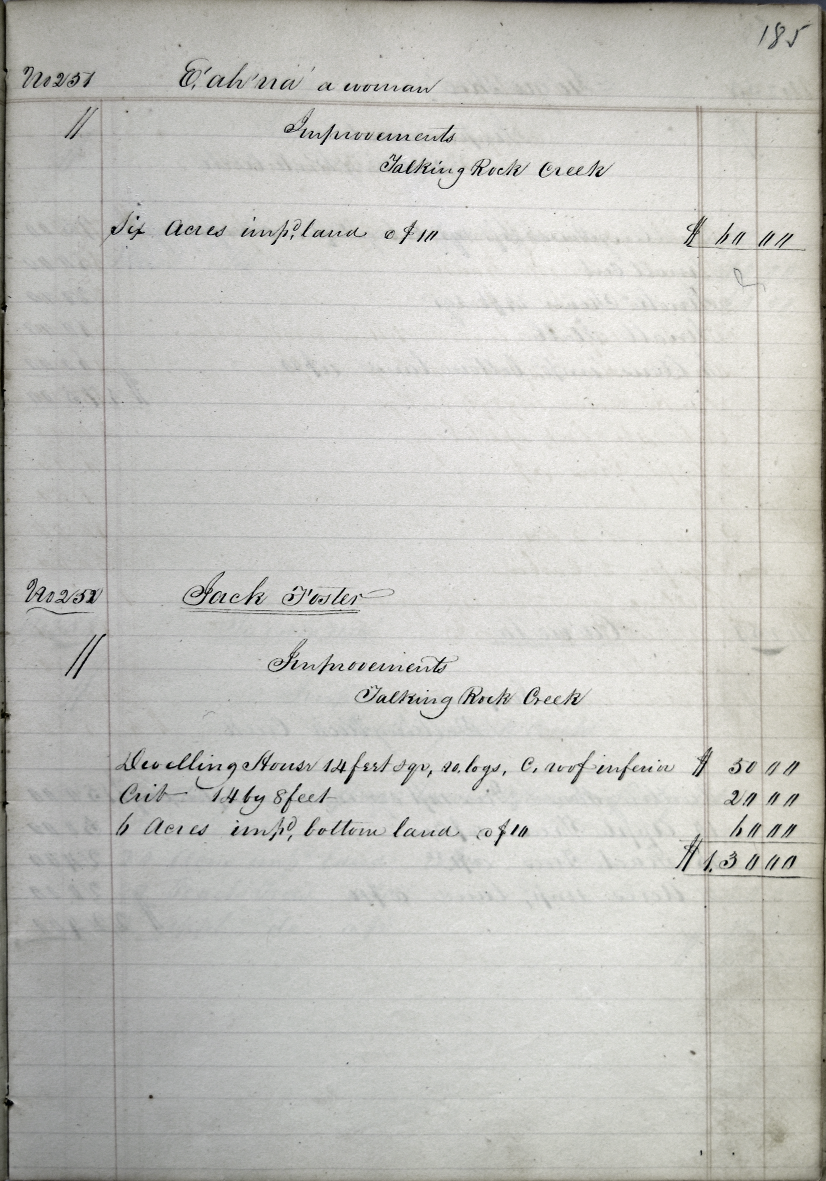 185
No 251 E'ah'na' a woman
" Improvements
Talking Rock Creek
Six Acres imp.d land @ $10 $ 60 00
No 252 Jack Foster
" Improvements
Talking Rock Creek
Dwelling House 14 feet sqr, r. logs, C. roof inferior $ 50 00
Crib 14 by 8 feet 20 00
6 Acres imp.d, bottom land @ $10 60 00
$ 130 00